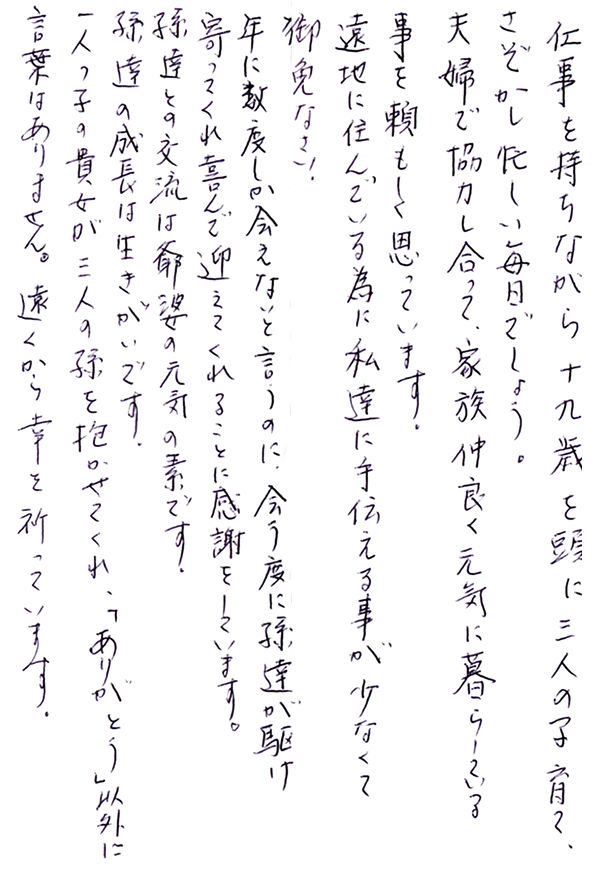 仕事を持ちながら十九歳を頭に三人の子育て、
さぞかし忙しい毎日でしょう。
夫婦で協力し合って、家族仲良く元気に暮らしている
事を頼もしく思っています。
遠地に住んでいる為に私達に手伝える事が少なくて
御免なさい。
年に数度しか会えないと言うのに、会う度に孫達が駆け
寄ってくれ喜んで迎えてくれることに感謝をしています。
孫達との交流は爺婆の元気の素です。
孫達の成長は生きがいです。
一人っ子の貴女が三人の孫を抱かせてくれ、「ありがとう」以外に
言葉はありません。遠くから幸を祈っています。